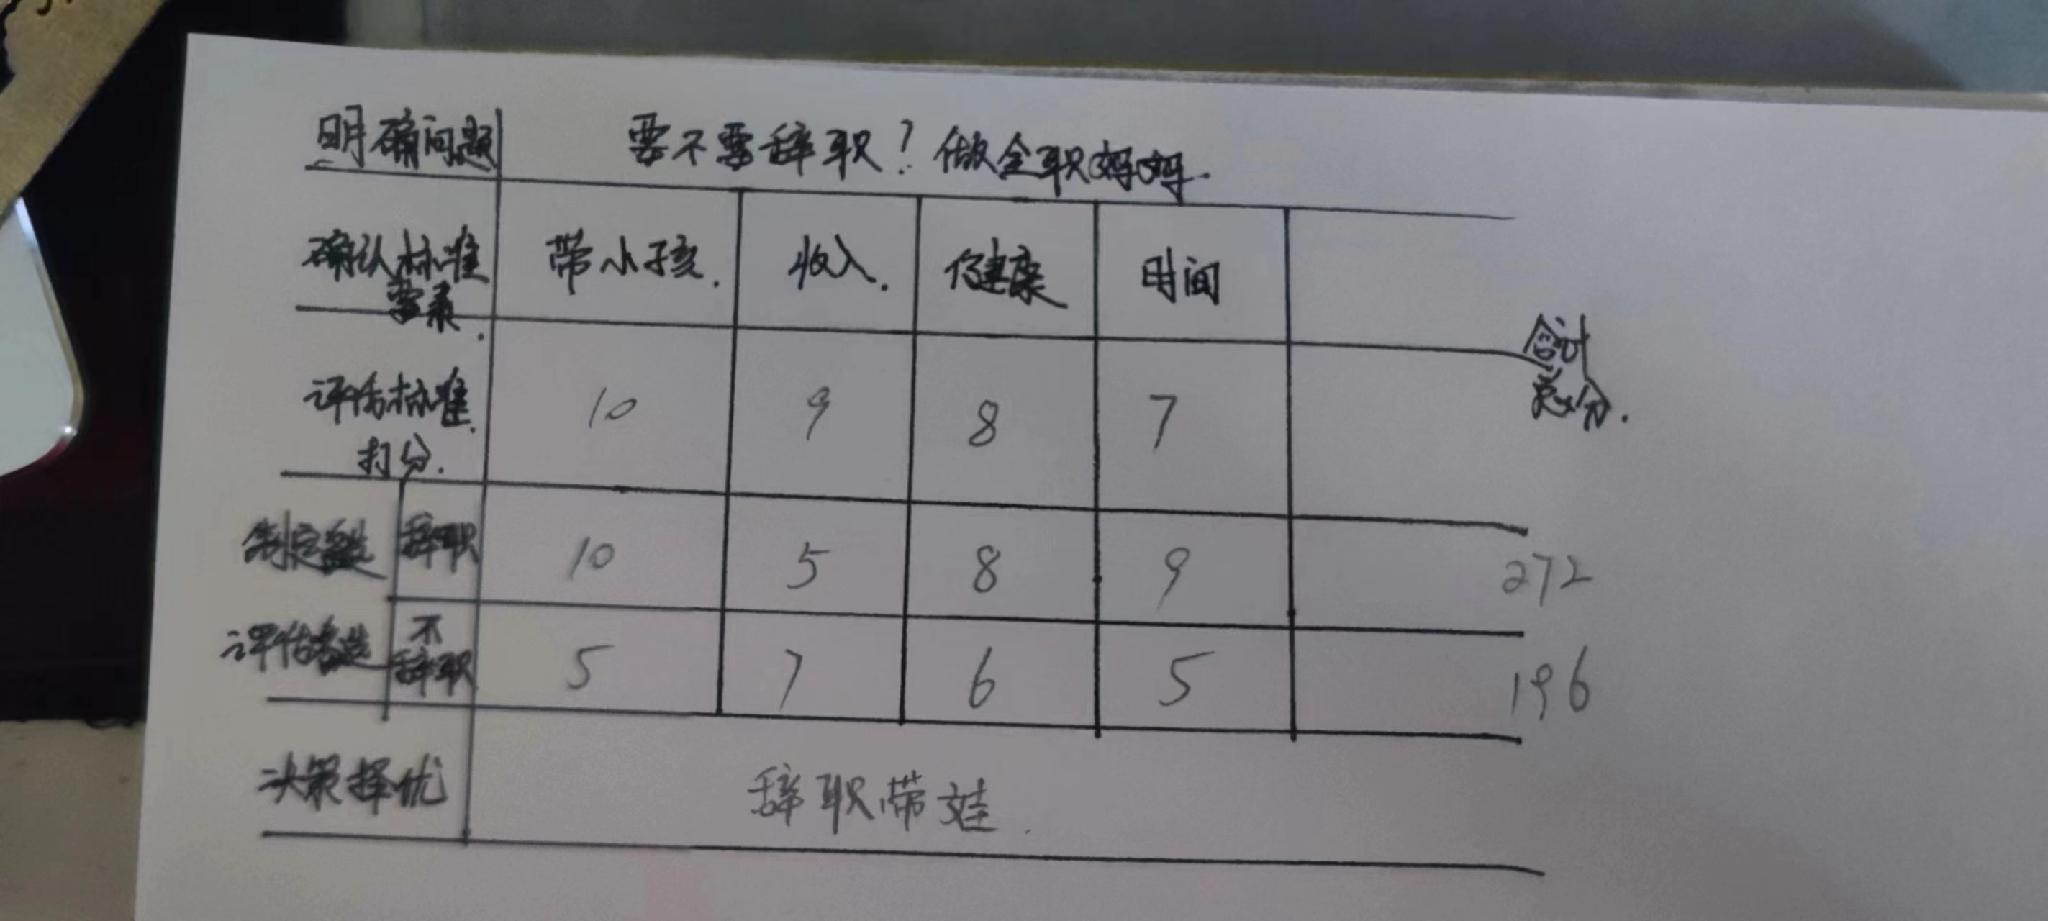 明确问题 要不要辞职？做全职妈妈.
确认标准要素. 带小孩. 收入. 健康 时间
合计总分.
评估标准打分. 10 9 8 7
制定备选 辞职 10 5 8 9 272
评估备选 不辞职 5 7 6 5 196
决策择优 辞职带娃.